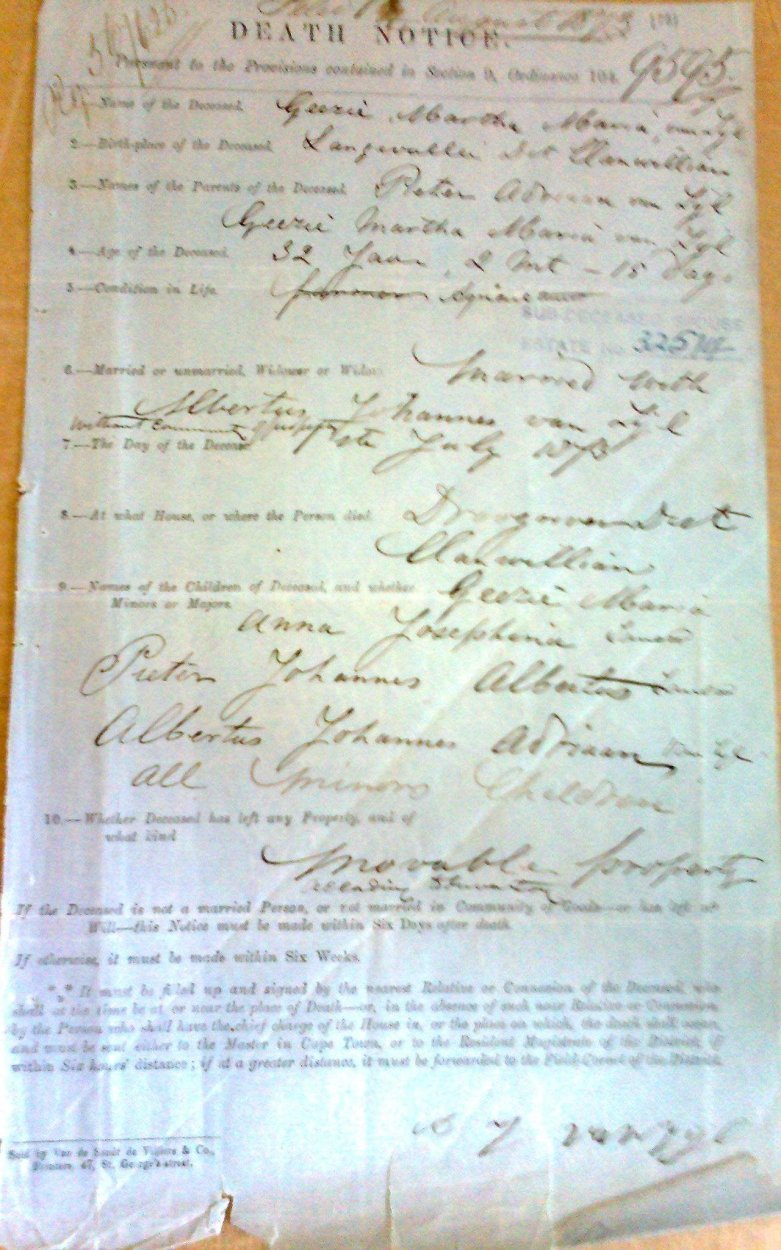 August 1873 (79)
DEATH NOTICE.
Pursuant to the Provisions contained in Section 9, Ordinance 104.
9595
1.—Name of the Deceased. Geezie Martha Maria van Zyl
2.—Birth-place of the Deceased. Langevallei Dist Clanwilliam
3.—Names of the Parents of the Deceased. Pieter Adriaan van Zyl
Geezie Martha Maria van Zyl
4.—Age of the Deceased. 32 Jaar, 2 Mt - 15 Dags
5.—Condition in Life.
ESTATE No. 3257
6.—Married or unmarried, Widower or Widow Married with
Albertus Johannes van Zyl
without Community of property
7.—The Day of the Decease July
8.—At what House, or where the Person died. Dist
Clanwilliam
9.—Names of the Children of Deceased, and whether Geezie Maria
Minors or Majors.
Anna Josephina
Pieter Johannes Albertus
Albertus Johannes Adriaan van Zyl
all minors Children
10.—Whether Deceased has left any Property, and of
what kind
Movable property
If the Deceased is not a married Person, or not married in Community of Goods—or has left no
Will—this Notice must be made within Six Days after death.
If otherwise, it must be made within Six Weeks.
*** It must be filled up and signed by the nearest Relative or Connexion of the Deceased, who
shall at the time be at or near the place of Death—or, in the absence of such near Relative or Connexion,
by the Person who shall have the chief charge of the House in, or the place on which, the death shall occur,
and must be sent either to the Master in Cape Town, or to the Resident Magistrate of the District, if
within Six hours' distance; if at a greater distance, it must be forwarded to the Field-Cornet of the District.
A J van Zyl
Sold by Van de Sandt de Villiers & Co.,
Printers, 47, St. George's-street.